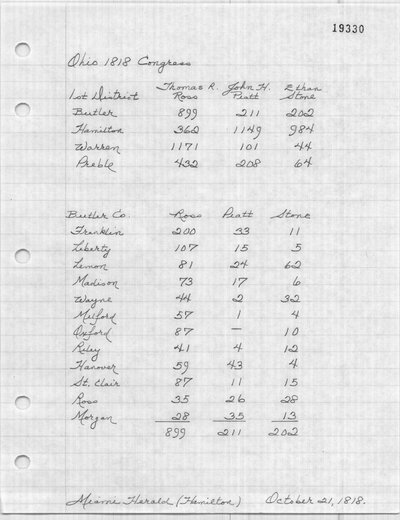 19330
Ohio 1818 Congress
Thomas R. John H. Ethan
1st District Ross Piatt Stone
Butler 899 211 202
Hamilton 362 1149 984
Warren 1171 101 44
Preble 432 208 64
Butler Co. Ross Piatt Stone
Franklin 200 33 11
Liberty 107 15 5
Lemon 81 24 62
Madison 73 17 6
Wayne 44 2 32
Milford 57 1 4
Oxford 87 — 10
Riley 41 4 12
Hanover 59 43 4
St. Clair 87 11 15
Ross 35 26 28
Morgan 28 35 13
899 211 202
Miami Herald (Hamilton) October 21, 1818.